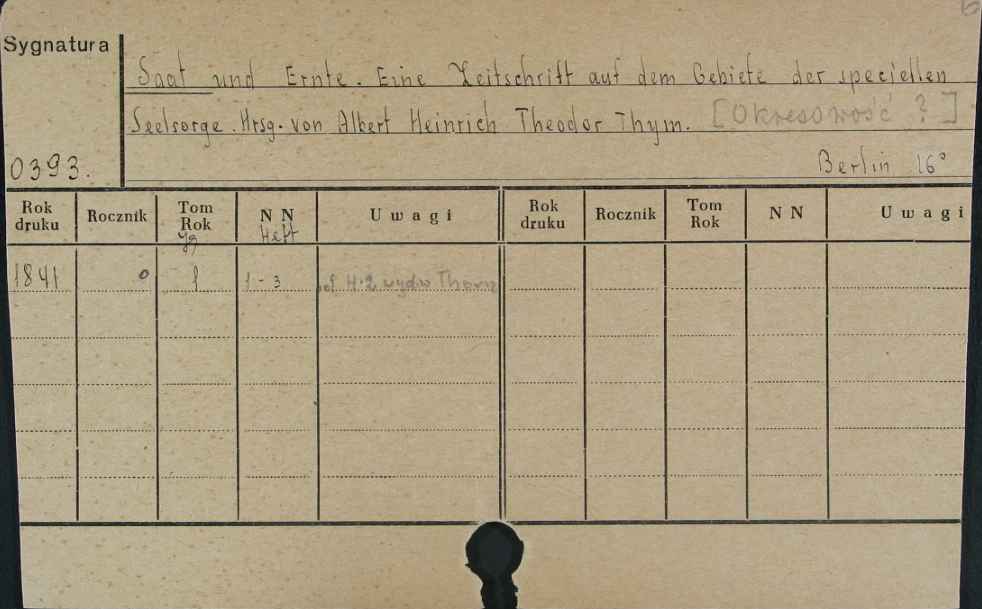 Sygnatura
Saat und Ernte. Eine Zeitschrift auf dem Gebiete der speciellen
Seelsorge. Hrsg. von Albert Heinrich Theodor Thym. [Okresowość ?]
0393.
Berlin 16°
Rok druku Rocznik Tom Rok Jg N N Heft Uwagi Rok druku Rocznik Tom Rok N N Uwagi
1841 0 1 1-3 od H.2 wyd. w Thorn